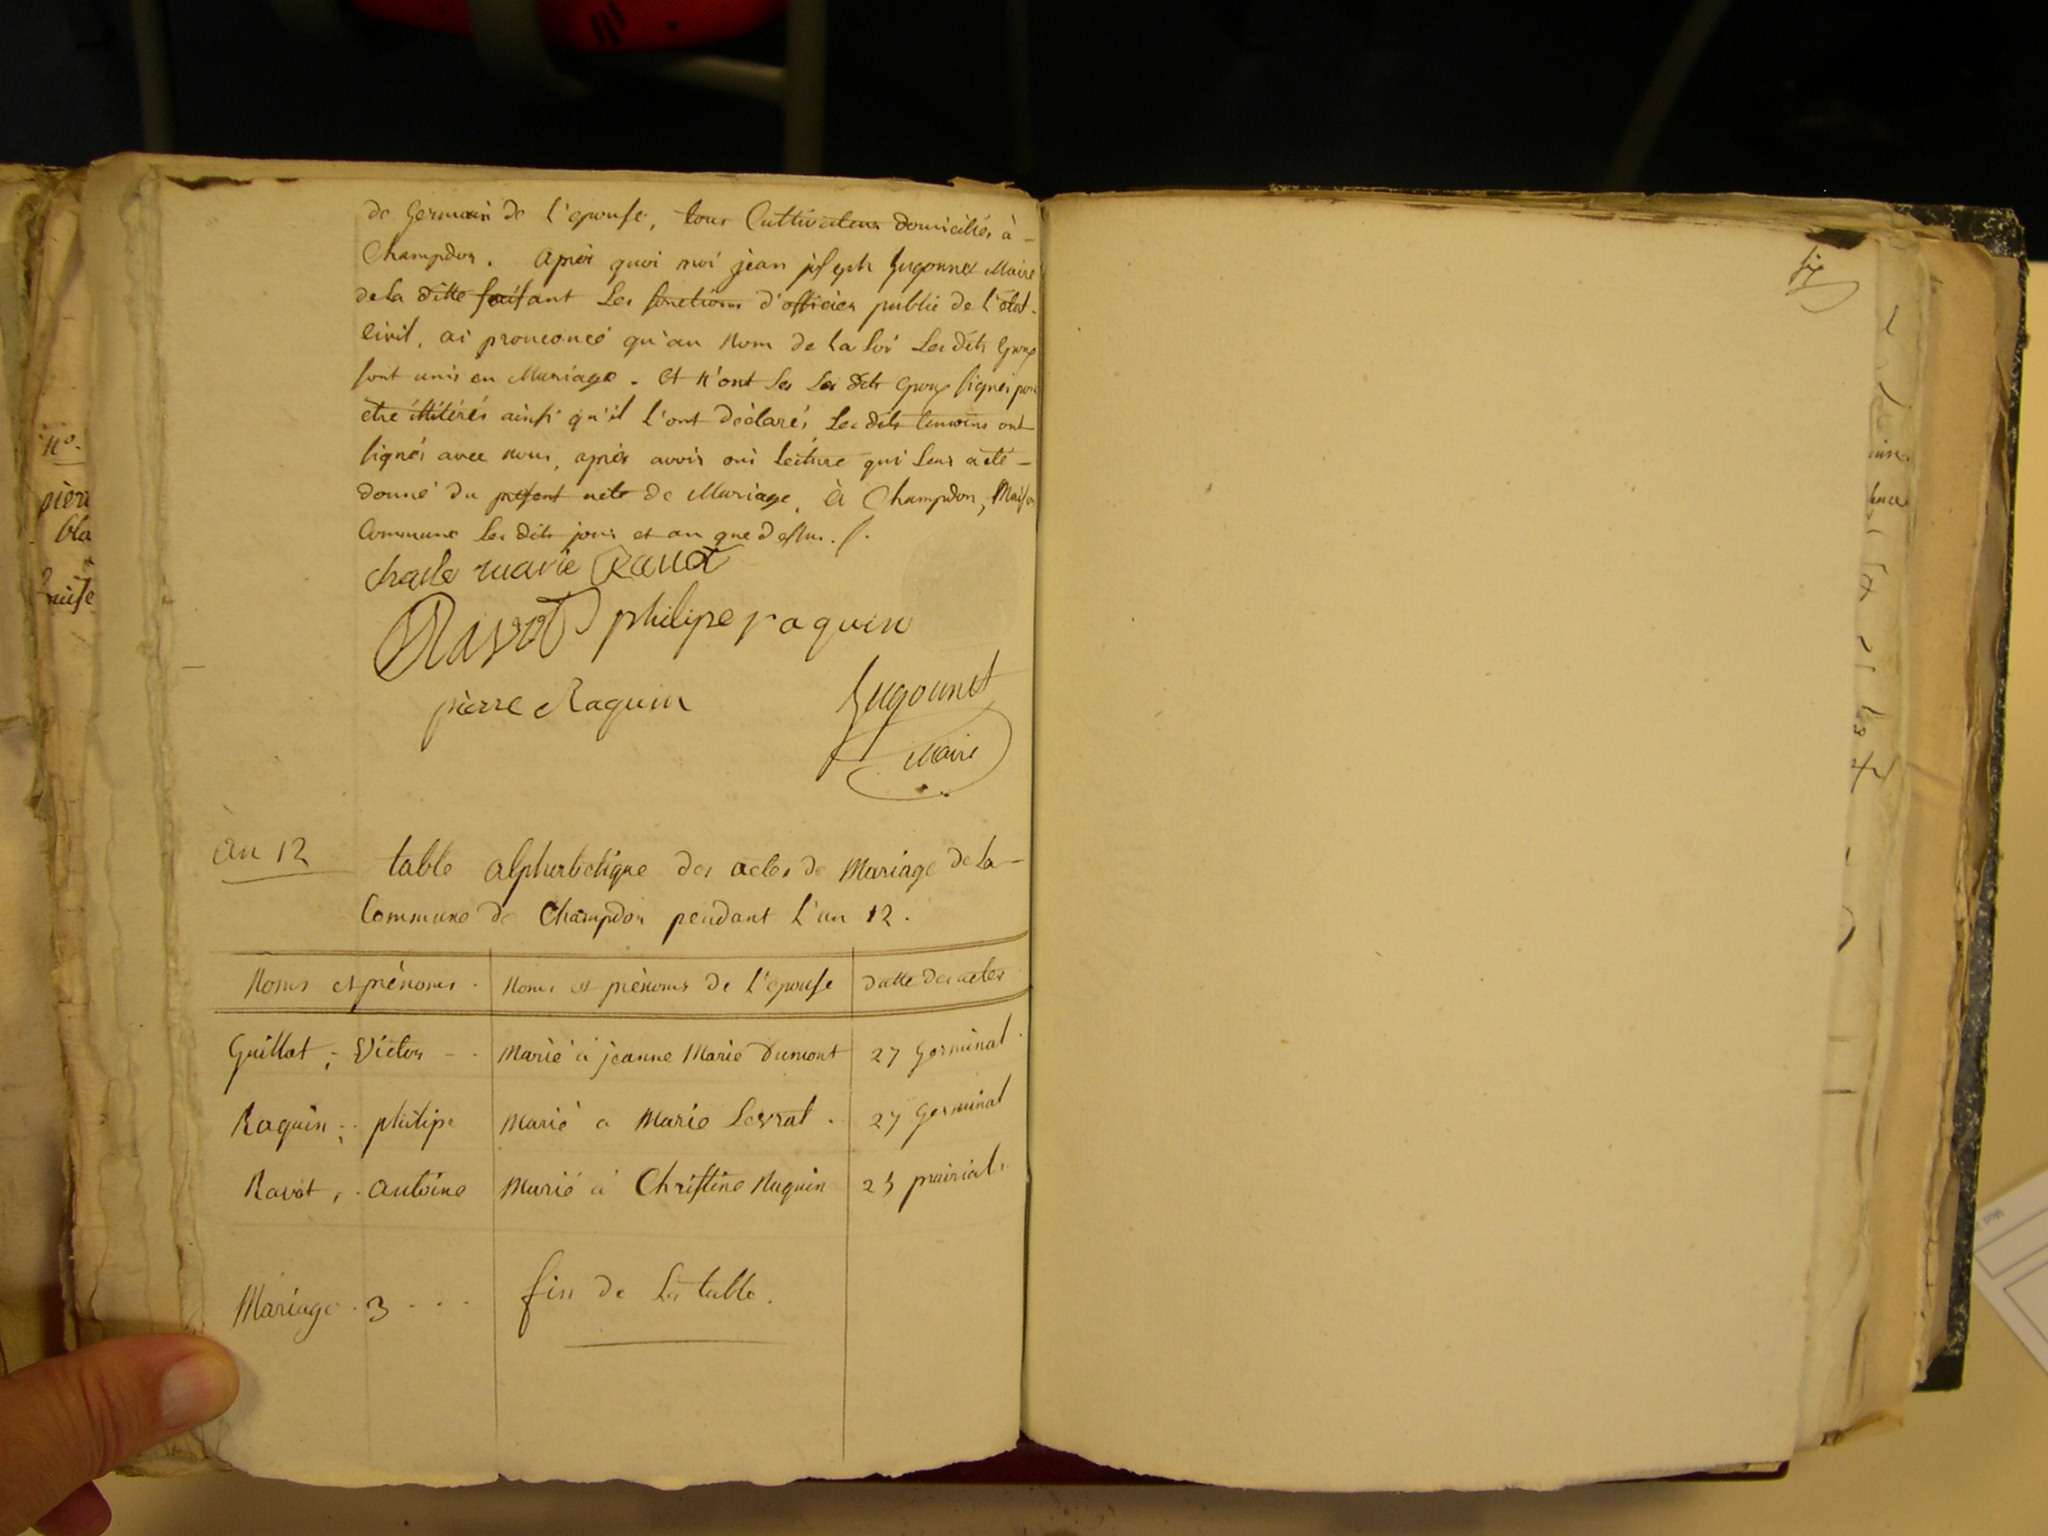 de Germain de l'epouse, tous Cultivateurs domiciliés à -
Champdor. Après quoi moi jean joseph hugonnet Maire
de la ditte faisant Les fonctions d'officier public de l'état -
Civil, ai prononcé qu'au Nom de la Loi Les dits Epoux
sont unis en Mariage. Et n'ont Les dits Epoux signés pour
etre illitérés ainsi qu'il l'ont déclarés, Les dits temoins ont
signés avec nous, après avoir oui lecture qui Leur a eté -
donné du present acte de Mariage, à Champdor, Maison
Commune Les dits jour et an que dessus.
charle marie Ravot
Ravot philipe raquin
pierre Raquin hugonnet
Maire
An 12 table alphabetique des actes de Mariage de La -
Commune de Champdor pendant L'an 12.
Noms et prénoms. Noms et prénoms de l'épouse datte des actes
Guillot, Victor Marié à jeanne Marie Dumont 27 Germinal
Raquin philipe Marié a Marie Levrat. 27 Germinal
Ravot, antoine Marié à Christine Raquin 23 prairial.
Mariage. 3 - - - fin de La table.